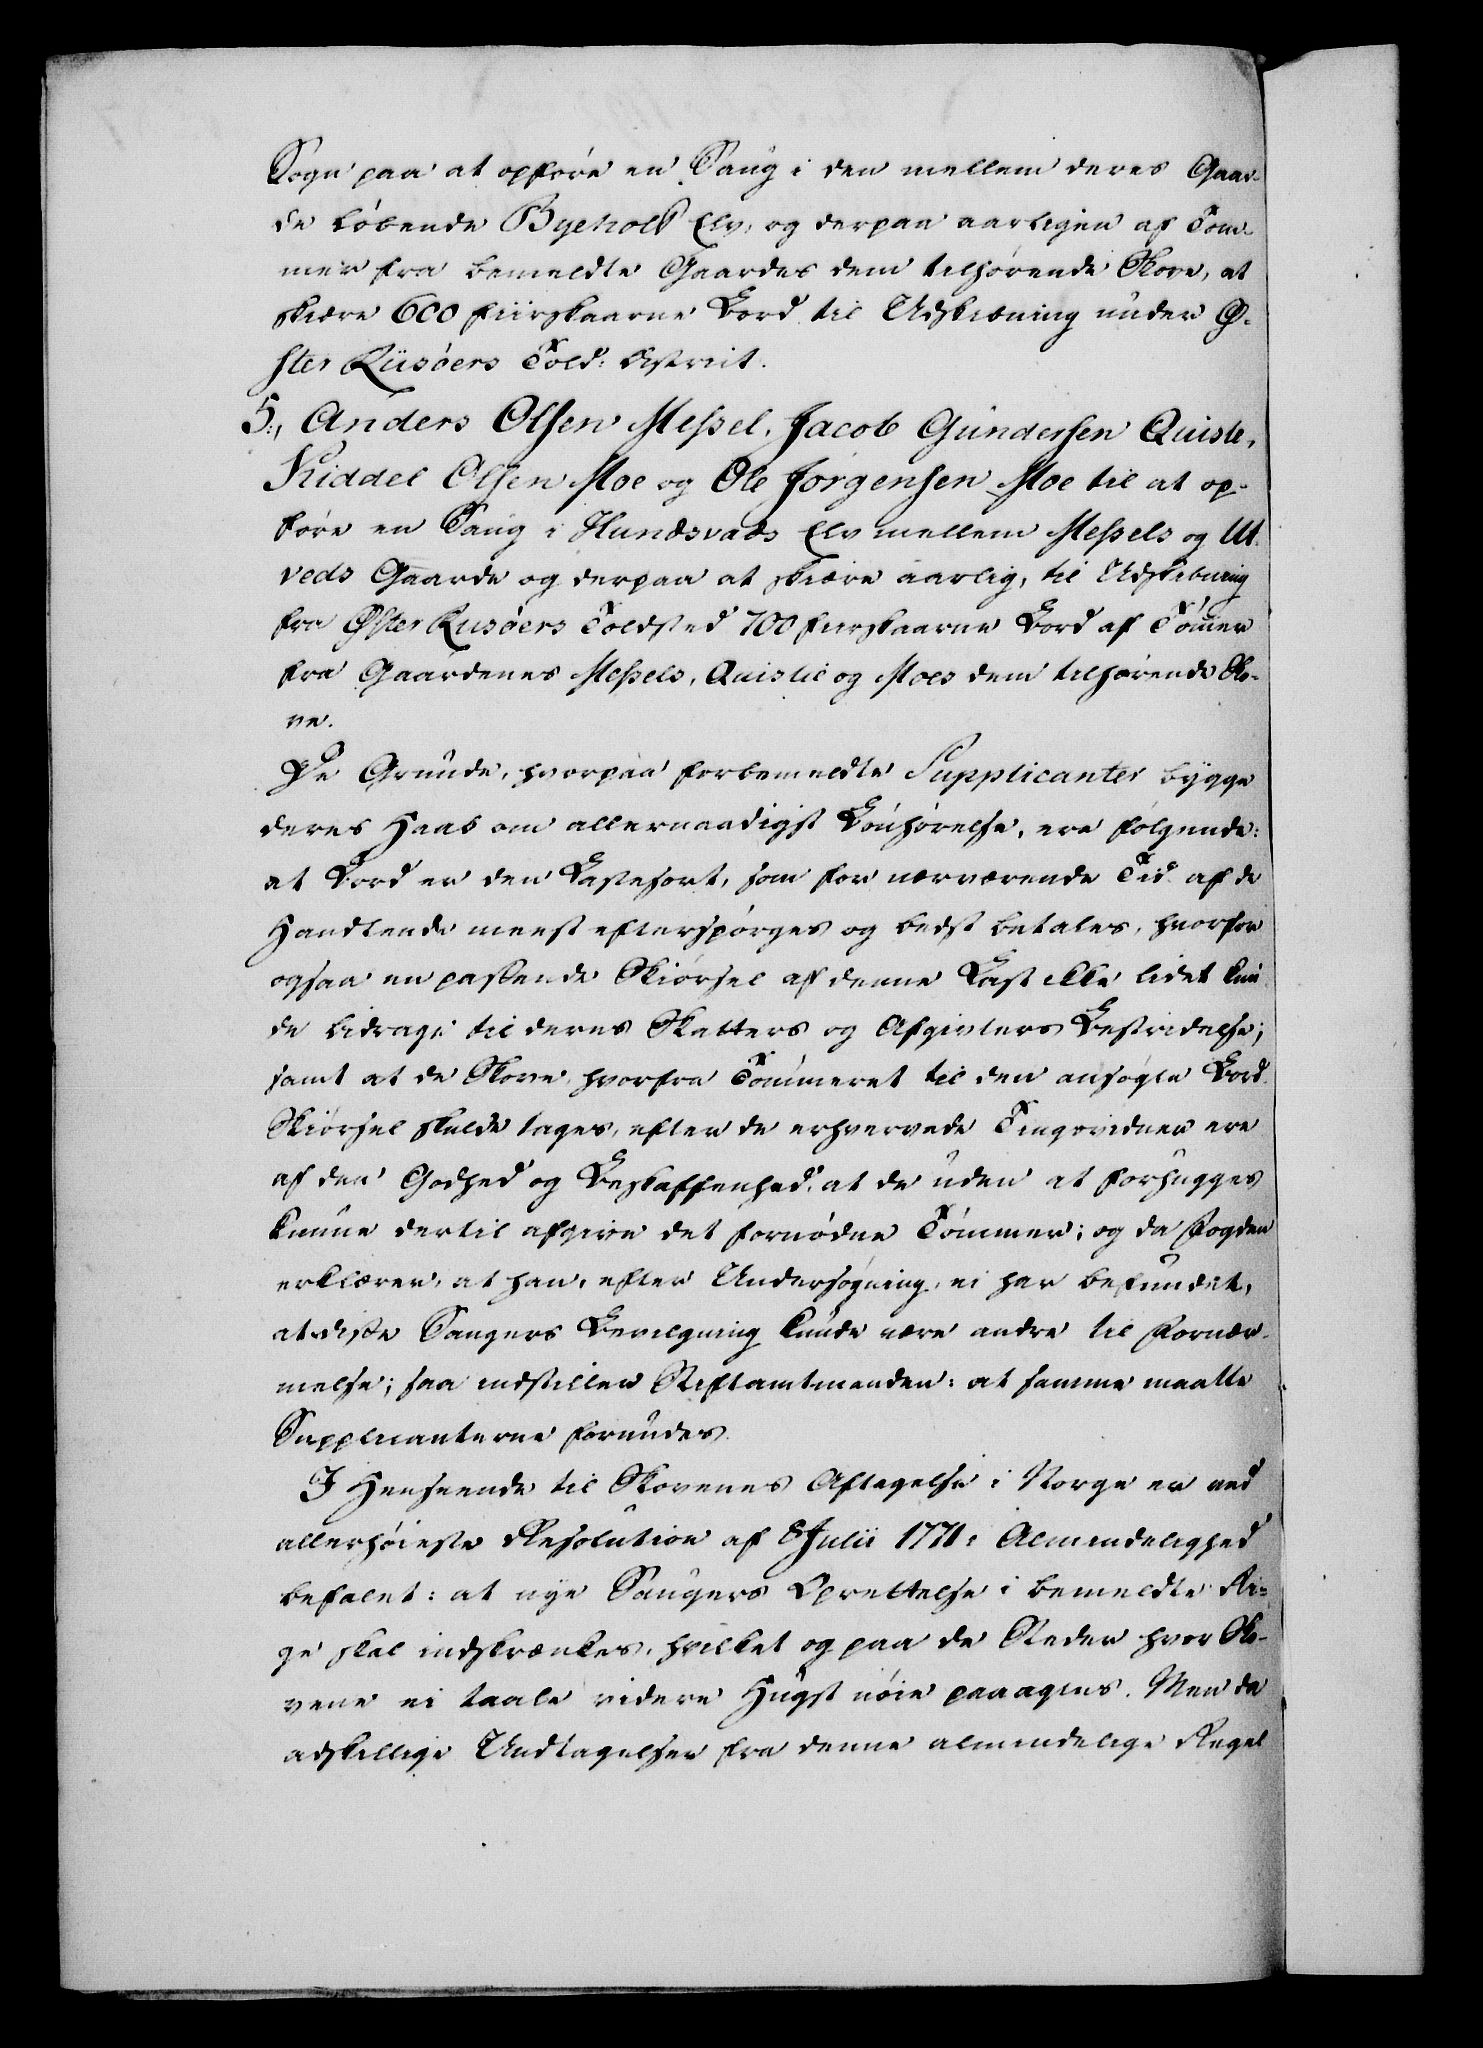 Sogn paa at opføre en Saug i den mellem deres Gaar-
de løbende Byeholt Elv, og derpaa aarligen af Tøm-
mer fra bemeldte Gaardes dem tilhørende Skove, at
skiære 600 fiirskaarne Bord til Udskibning under Ø-
ster Riisøers Told: District.
5., Anders Olsen Messel, Jacob Gundersen Quistle,
Kiddel Olsen Moe og Ole Jørgensen Moe til at op-
føre en Saug i Hundsvads Elv mellem Messels og Ul-
veds Gaarde og derpaa at skiære aarlig, til Udskibning
fra Øster Riisøers Toldsted 700 fiirskaarne Bord af Tømmer
fra Gaardenes Messels, Quistle og Moes dem tilhørende Sko-
ve.
De Grunde, hvorpaa forbemeldte Supplicanter bygge
deres Haab om allernaadigst Bønhørelse, ere følgende:
at Bord er den Lastesort, som for nærværende Tid af de
Handlende meest efterspørges og bedst betales, hvorfor
ogsaa en passende Skiørsel af denne Last ikke lidet kun-
de bidrage til deres Skatters og Afgivters Bestridelse;
samt at de Skove, hvorfra Tømmeret til den ansøgte Bord-
Skiørsel skulde tages, efter de erhvervede Tingsvidner ere
af den Godhed og Beskaffenhed, at de uden at forhugges
kunne dertil afgive det fornødne Tømmer; og da Fogden
erklærer, at han, efter Undersøgning, ei har befundet,
at disse Saugers Bevilgning kunde være andre til Fornær-
melse; saa indstiller Stiftamtmanden: at samme maatte
Supplicanterne forundes.
I Henseende til Skovenes Aftagelse i Norge er ved
allerhøieste Resolution af 8 Julii 1771 i Almindelighed
befalet: at nye Saugers Oprettelse i bemeldte Ri-
ge skal indskrænkes, hvilket og paa de Steder hvor Sko-
vene ei taale videre Hugst nøie paaagtes. Men da
adskillige Undtagelser fra denne almindelige Regel